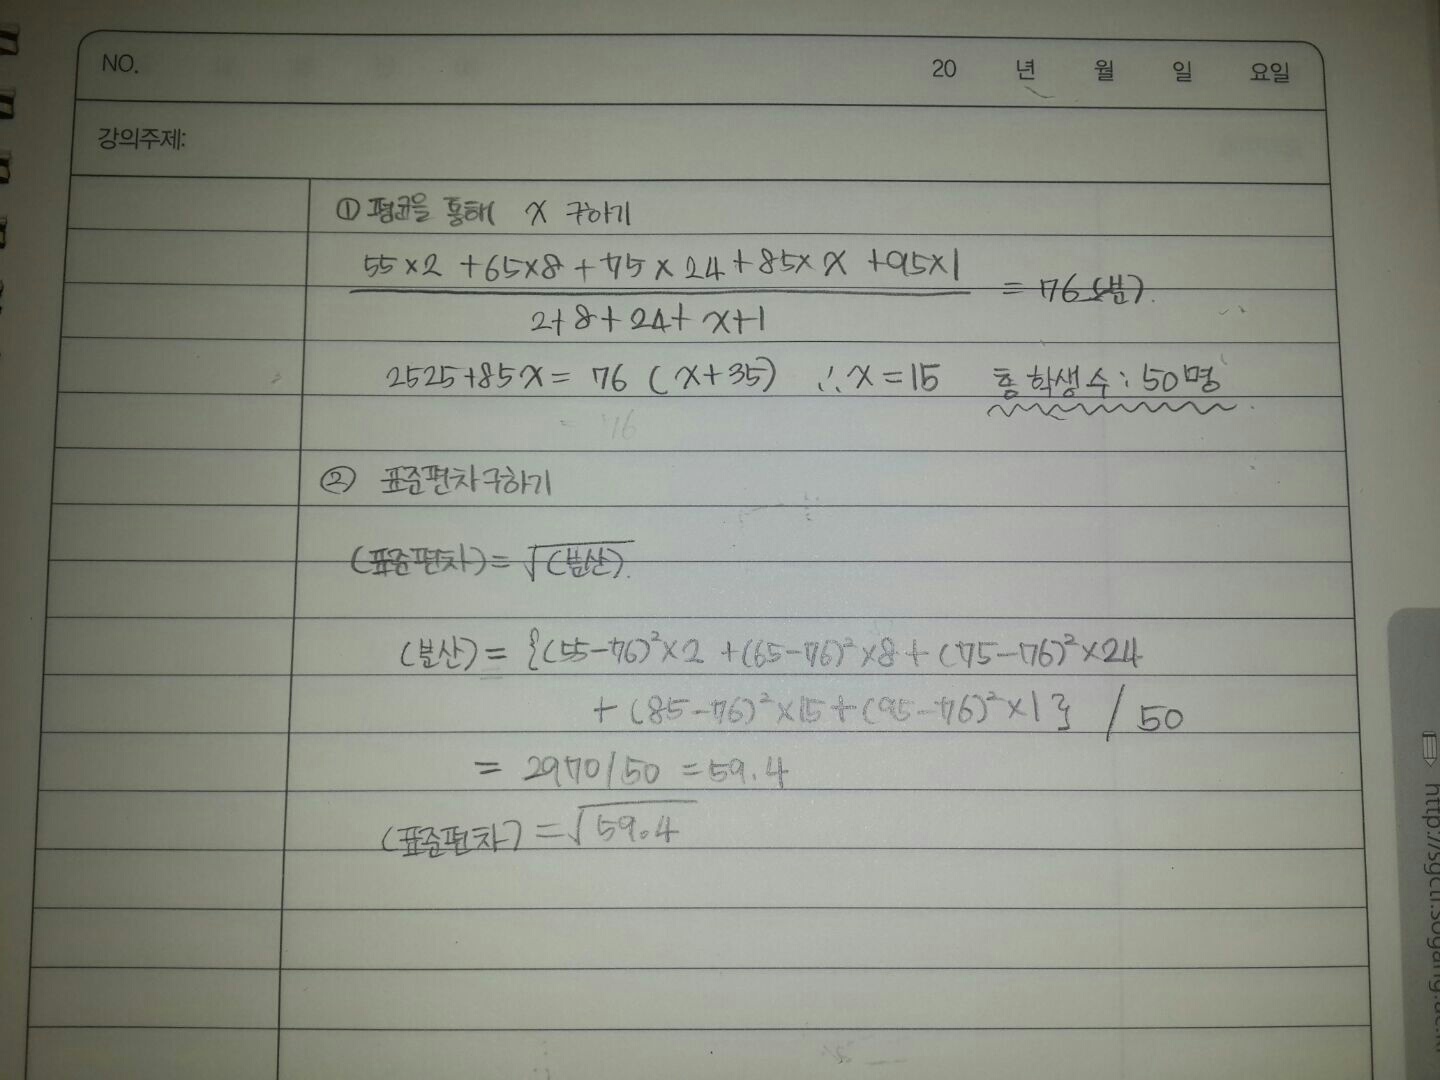 NO. 20 년 월 일 요일
강의주제:
① 평균을 통해 x 구하기
55×2 +65×8+75×24+85×x +95×1
= 76(분).
2+8+24+x+1
2525+85x= 76 (x+35) ∴x=15 총 학생수: 50명
= 76
② 표준편차구하기
(표준편차)=√(분산).
(분산)= {(55-76)²×2 +(65-76)²×8+(75-76)²×24
+(85-76)²×15+(95-76)²×1} / 50
= 2970/50 =59.4
(표준편차)=√59.4